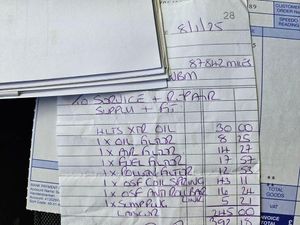 28
8/1/25
87842 MILES
TO SERVICE + REPAIR
SUPPLY + FIT
4 LTS XTR OIL 30 00
1 X OIL FILTER 8 25
1 X AIR FILTER 14 27
1 X FUEL FILTER 17 57
1 X POLLEN FILTER 12 53
1 X OSF COIL SPRING 43 11
1 X OSF ANTI ROLLBAR LINK 16 24
1 X SUMP PLUG 5 21
LABOUR 245 00
392 18
CUSTOMER
ORDER
SPEEDO
READING
TOTAL
GOODS
VAT
INVOICE